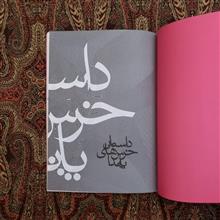 داس
خرس
داستان
خرس‌های
پاندا